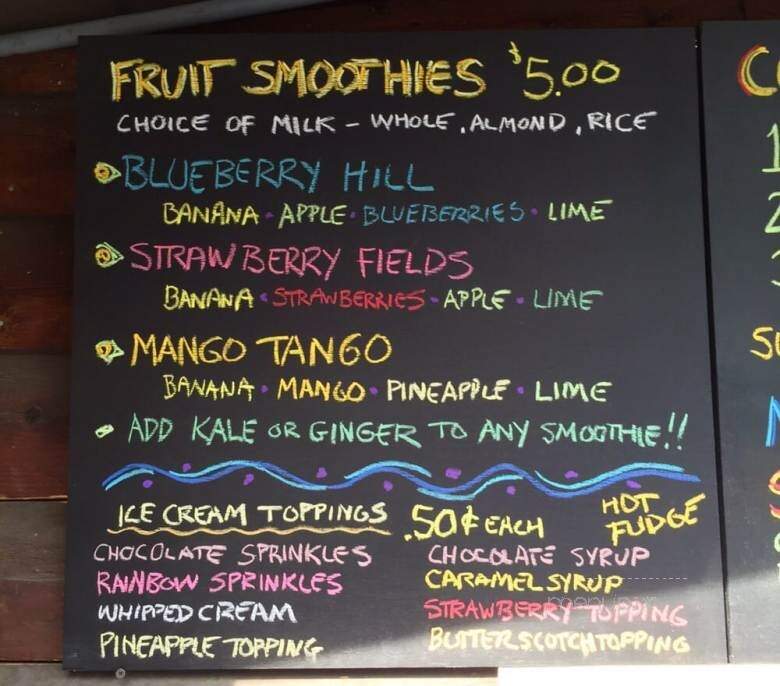 FRUIT SMOOTHIES $5.00
CHOICE OF MILK - WHOLE, ALMOND, RICE
BLUEBERRY HILL
BANANA • APPLE • BLUEBERRIES • LIME
STRAWBERRY FIELDS
BANANA • STRAWBERRIES • APPLE • LIME
MANGO TANGO
BANANA • MANGO • PINEAPPLE • LIME
ADD KALE OR GINGER TO ANY SMOOTHIE!!
ICE CREAM TOPPINGS .50¢ EACH HOT FUDGE
CHOCOLATE SPRINKLES CHOCOLATE SYRUP
RAINBOW SPRINKLES CARAMEL SYRUP
WHIPPED CREAM STRAWBERRY TOPPING
PINEAPPLE TOPPING BUTTERSCOTCH TOPPING